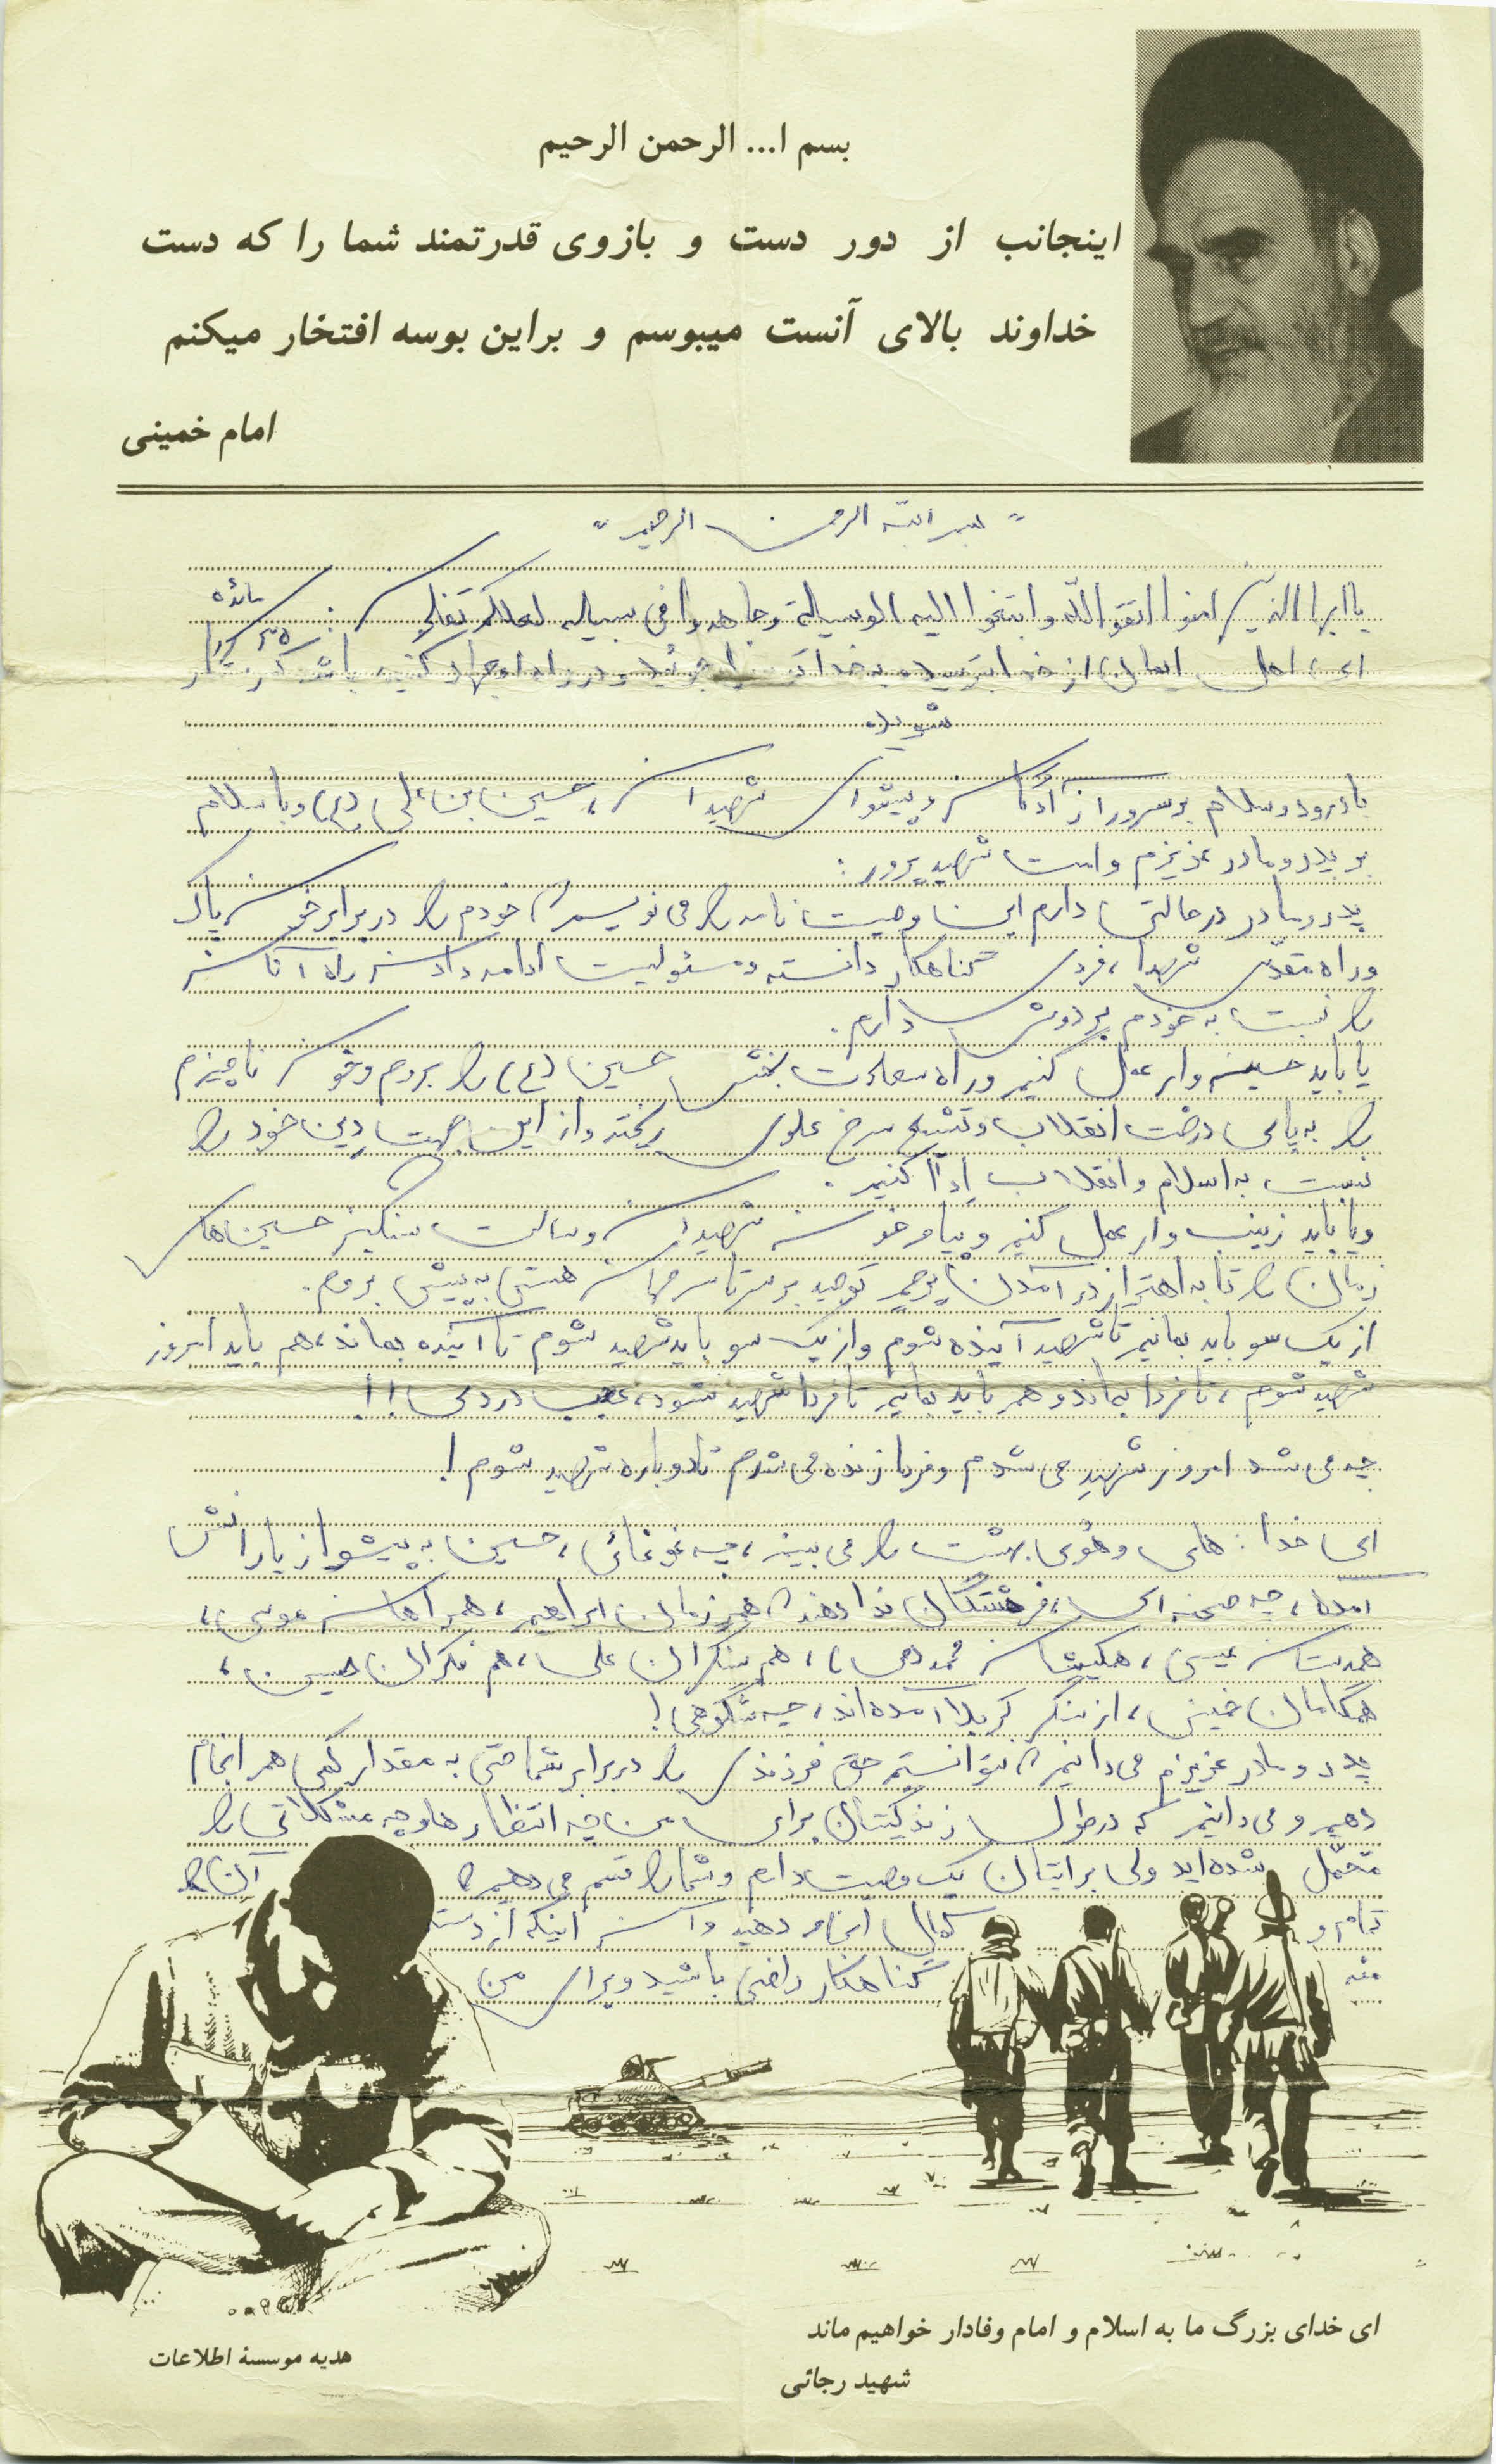 بسم ا... الرحمن الرحیم
اینجانب از دور دست و بازوی قدرتمند شما را که دست
خداوند بالای آنست میبوسم و براین بوسه افتخار میکنم
امام خمینی
" بسم الله الرحمن الرحیم "
یا ایها الذین امنوا اتقو الله و ابتغوا الیه الوسیلة و جاهدوا فی سبیله لعلکم تفلحون : مائده ۳۵
ای اهل ایمان از خدا بترسید و به خدا توسل جوئید و در راه او جهاد کنید باشد که رستگار
شوید
با درود و سلام بر سرور آزادگان و پیشوای شهیدان ، حسین بن علی (ع) و با سلام
بر پدر و مادر عزیزم و امت شهید پرور :
پدر و مادر در حالتی دارم این وصیت نامه را می نویسم که خودم را در برابر خون پاک
و راه مقدس شهدا ، فردی گناهکار دانسته و مسئولیت ادامه دادن راه آنان
را نسبت به خودم بر دوش دارم .
یا باید حسین وار عمل کنیم و راه سعادت بخش حسین (ع) را برویم و خون ناچیزم
را به پای درخت انقلاب و تشیع سرخ علوی ریخته و از این جهت دین خود را
نسبت به اسلام و انقلاب ادا کنیم .
و یا باید زینب وار عمل کنیم و پیام خون شهیدان و رسالت سنگین حسین های
زمان را تا به اهتزاز در آمدن پرچم توحید بر سرتاسر جهان هستی به پیش بریم .
از یک سو باید بمانیم تا شهید آینده شویم و از یک سو باید شهید شویم تا آینده بماند ، هم باید امروز
شهید شویم ، تا فردا بماند و هم باید بمانیم تا فردا شهید نشود ، عجب دردی !!
چه می شد امروز شهید می شدم و فردا زنده می شدم تا دوباره شهید شوم !
ای خدا : های و هُوی بهشت را می بینم ، چه غوغائی ، حسین به پیشواز یارانش
آمده ، چه صحنه ای ، فرشتگان ندا دهند که همرزمان ابراهیم ، همراهان موسی ،
همدستان عیسی ، همکیشان محمد (ص) ، هم سنگران علی ، هم فکران حسین ،
همگامان خمینی ، از سنگر کربلا آمده اند ، چه شکوهی !
پدر و مادر عزیزم می دانیم که نتوانستم حق فرزندی را در برابر شما حتی به مقدار کمی هم انجام
دهیم و می دانیم که در طول زندگیتان برای من چه انتظار ها و چه مشکلاتی را
متحمّل شده اید ولی برایتان یک وصیت دارم و شما را قسم می دهیم که آن را
تمام و کمال انجام دهید و آن اینکه از دست
منه گناهکار راضی باشید و برای من
ای خدای بزرگ ما به اسلام و امام وفادار خواهیم ماند
شهید رجائی
هدیه موسسهٔ اطلاعات